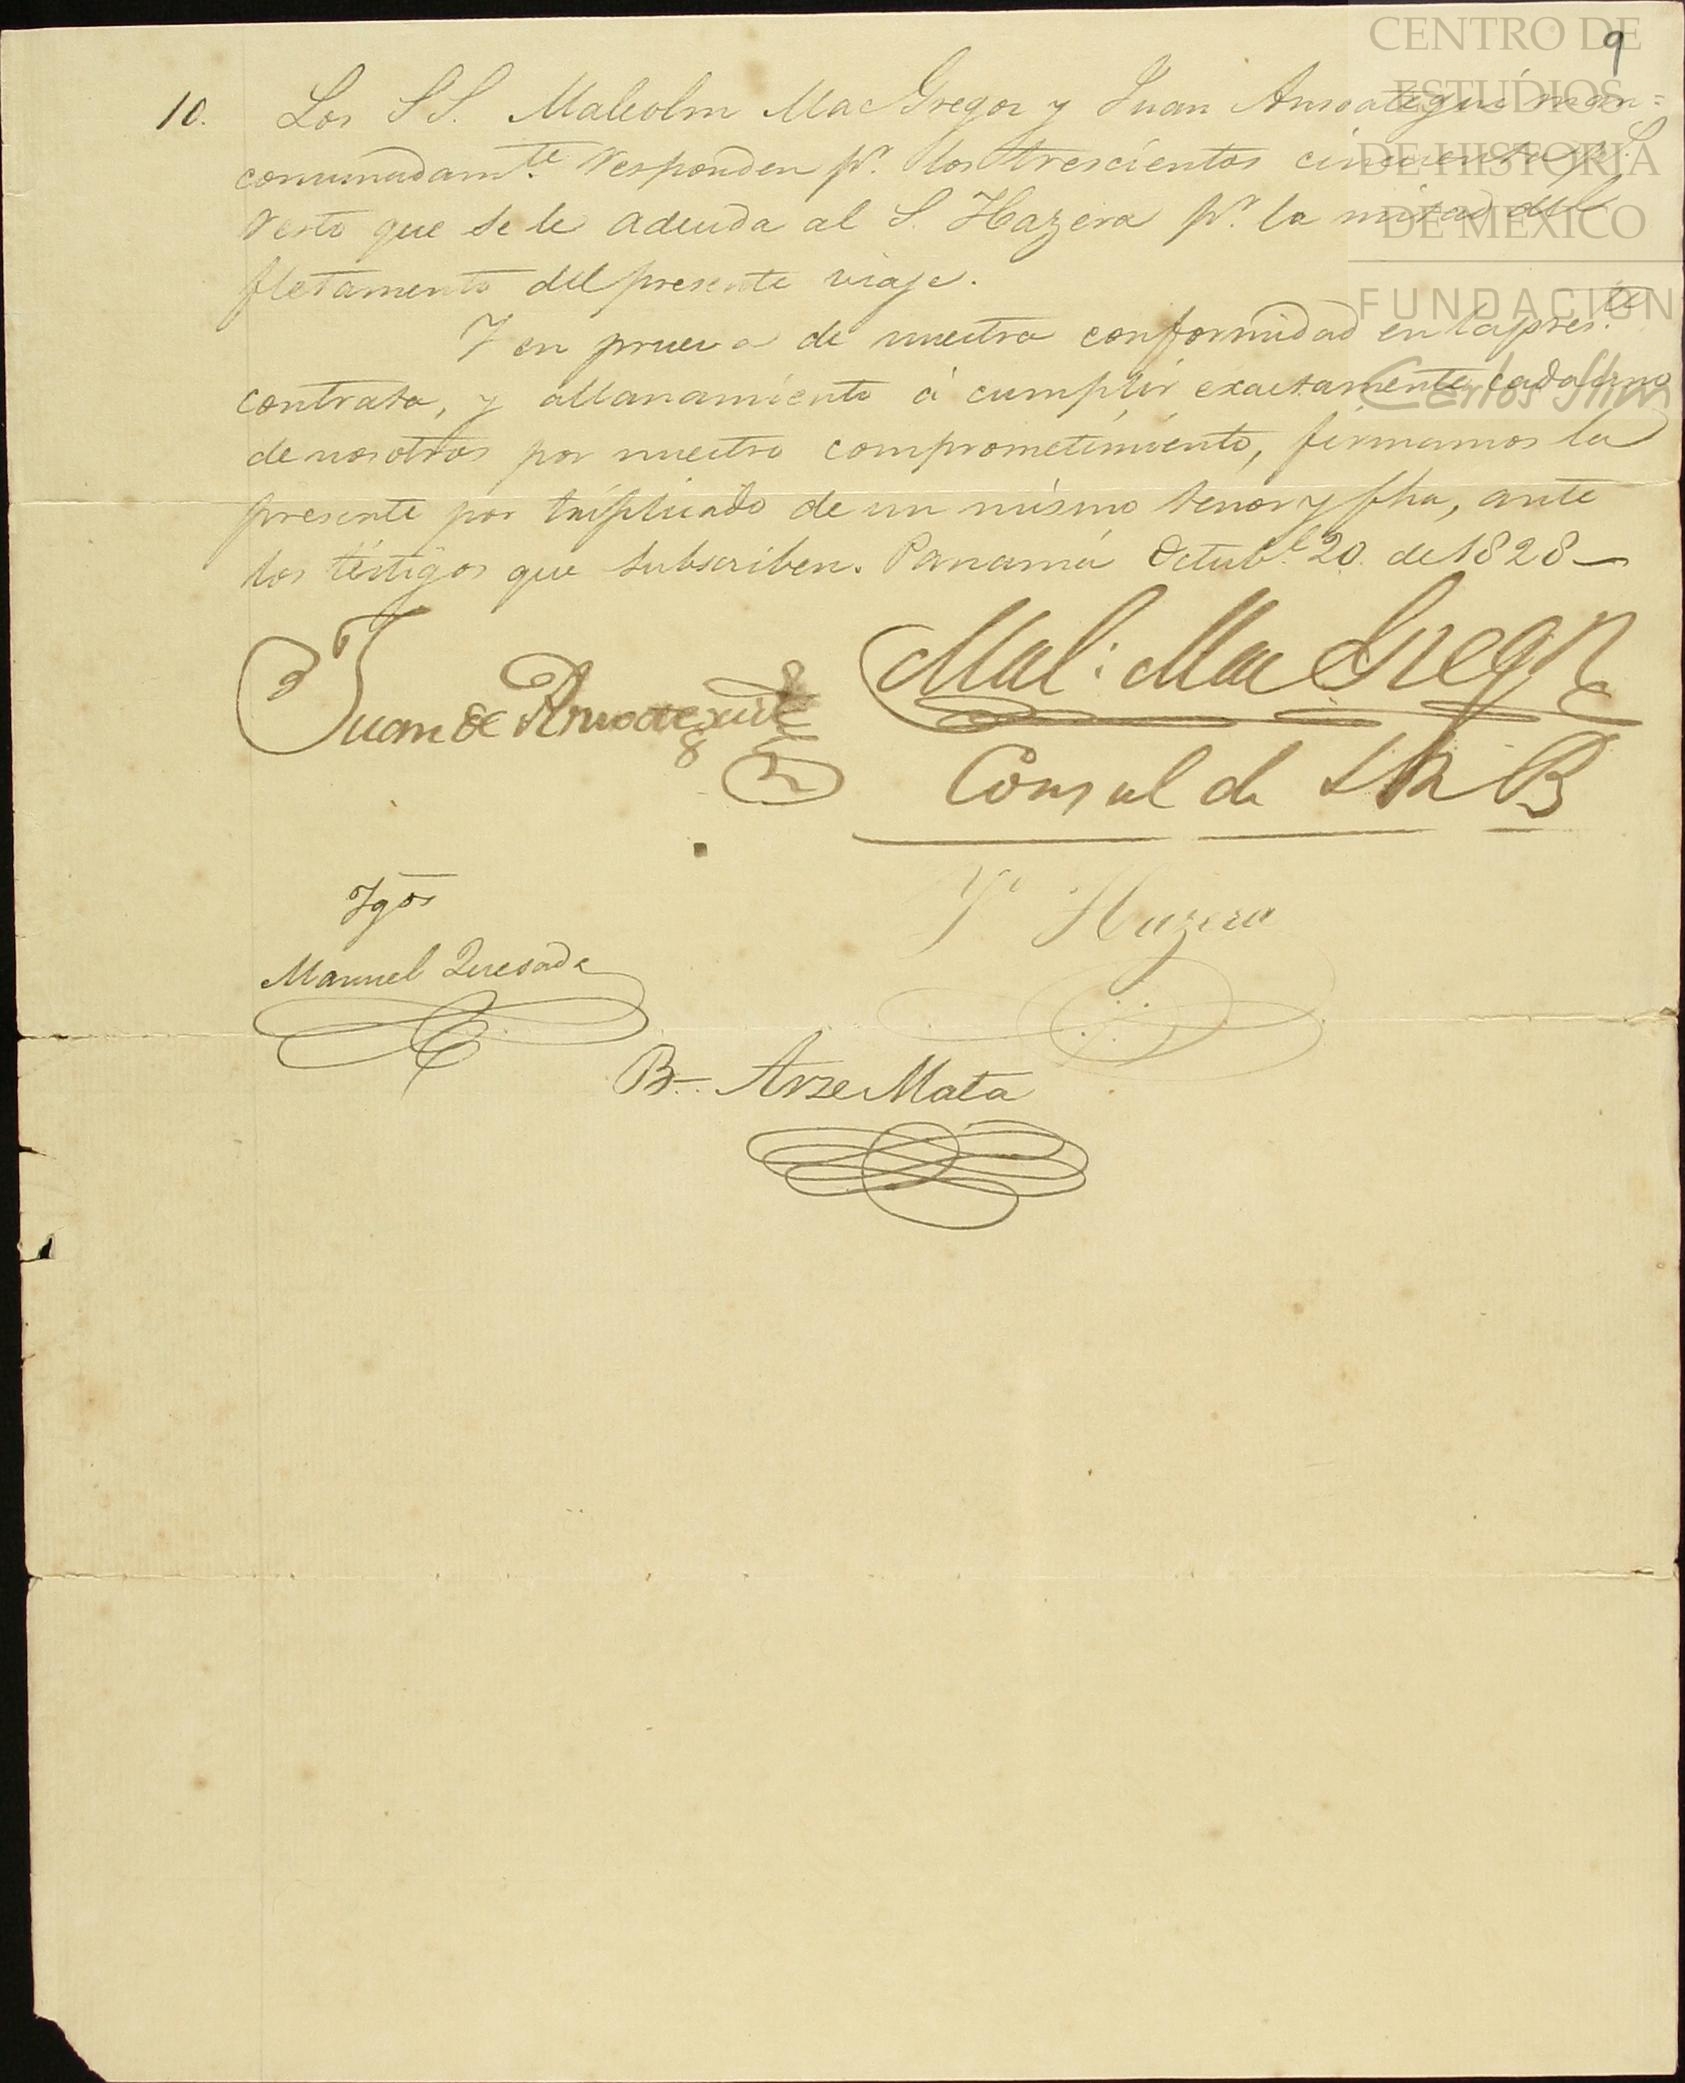 CENTRO DE
ESTUDIOS
DE HISTORIA
DE MÉXICO
FUNDACIÓN
Carlos Slim
9
10. Los SS. Malcolm MacGregor y Juan Ansoategui man=
comunadam.te responden p.r los trescientos cincuenta p.s
resto que se le adeuda al S. Hazera p.r la mitad del
fletamento del presente viaje.
Y en prueva de nuestra conformidad en la pres.te
contrata, y allanamiento á cumplir exactamente cada uno
de nosotros por nuestro comprometimiento, firmamos la
presente por triplicado de un mismo tenor y fha, ante
los testigos que subscriben. Panamá Octub.e 20. de 1828—
Juan de Ansoategui
Mal: MacGregor
Consul de S M B
Tgos
Hazera
Manuel Quesada
B. Arze Mata